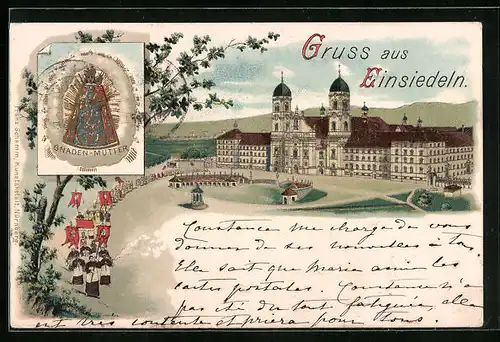 Gruss aus
Einsiedeln.
GNADEN-MUTTER
Constance me charge de vous
donner de ses nouvelles à
Elle sait que Marie aime les
cartes postales. Constance n'a
pas été du tout fatiguée, elle
est très contente et priera pour tous.